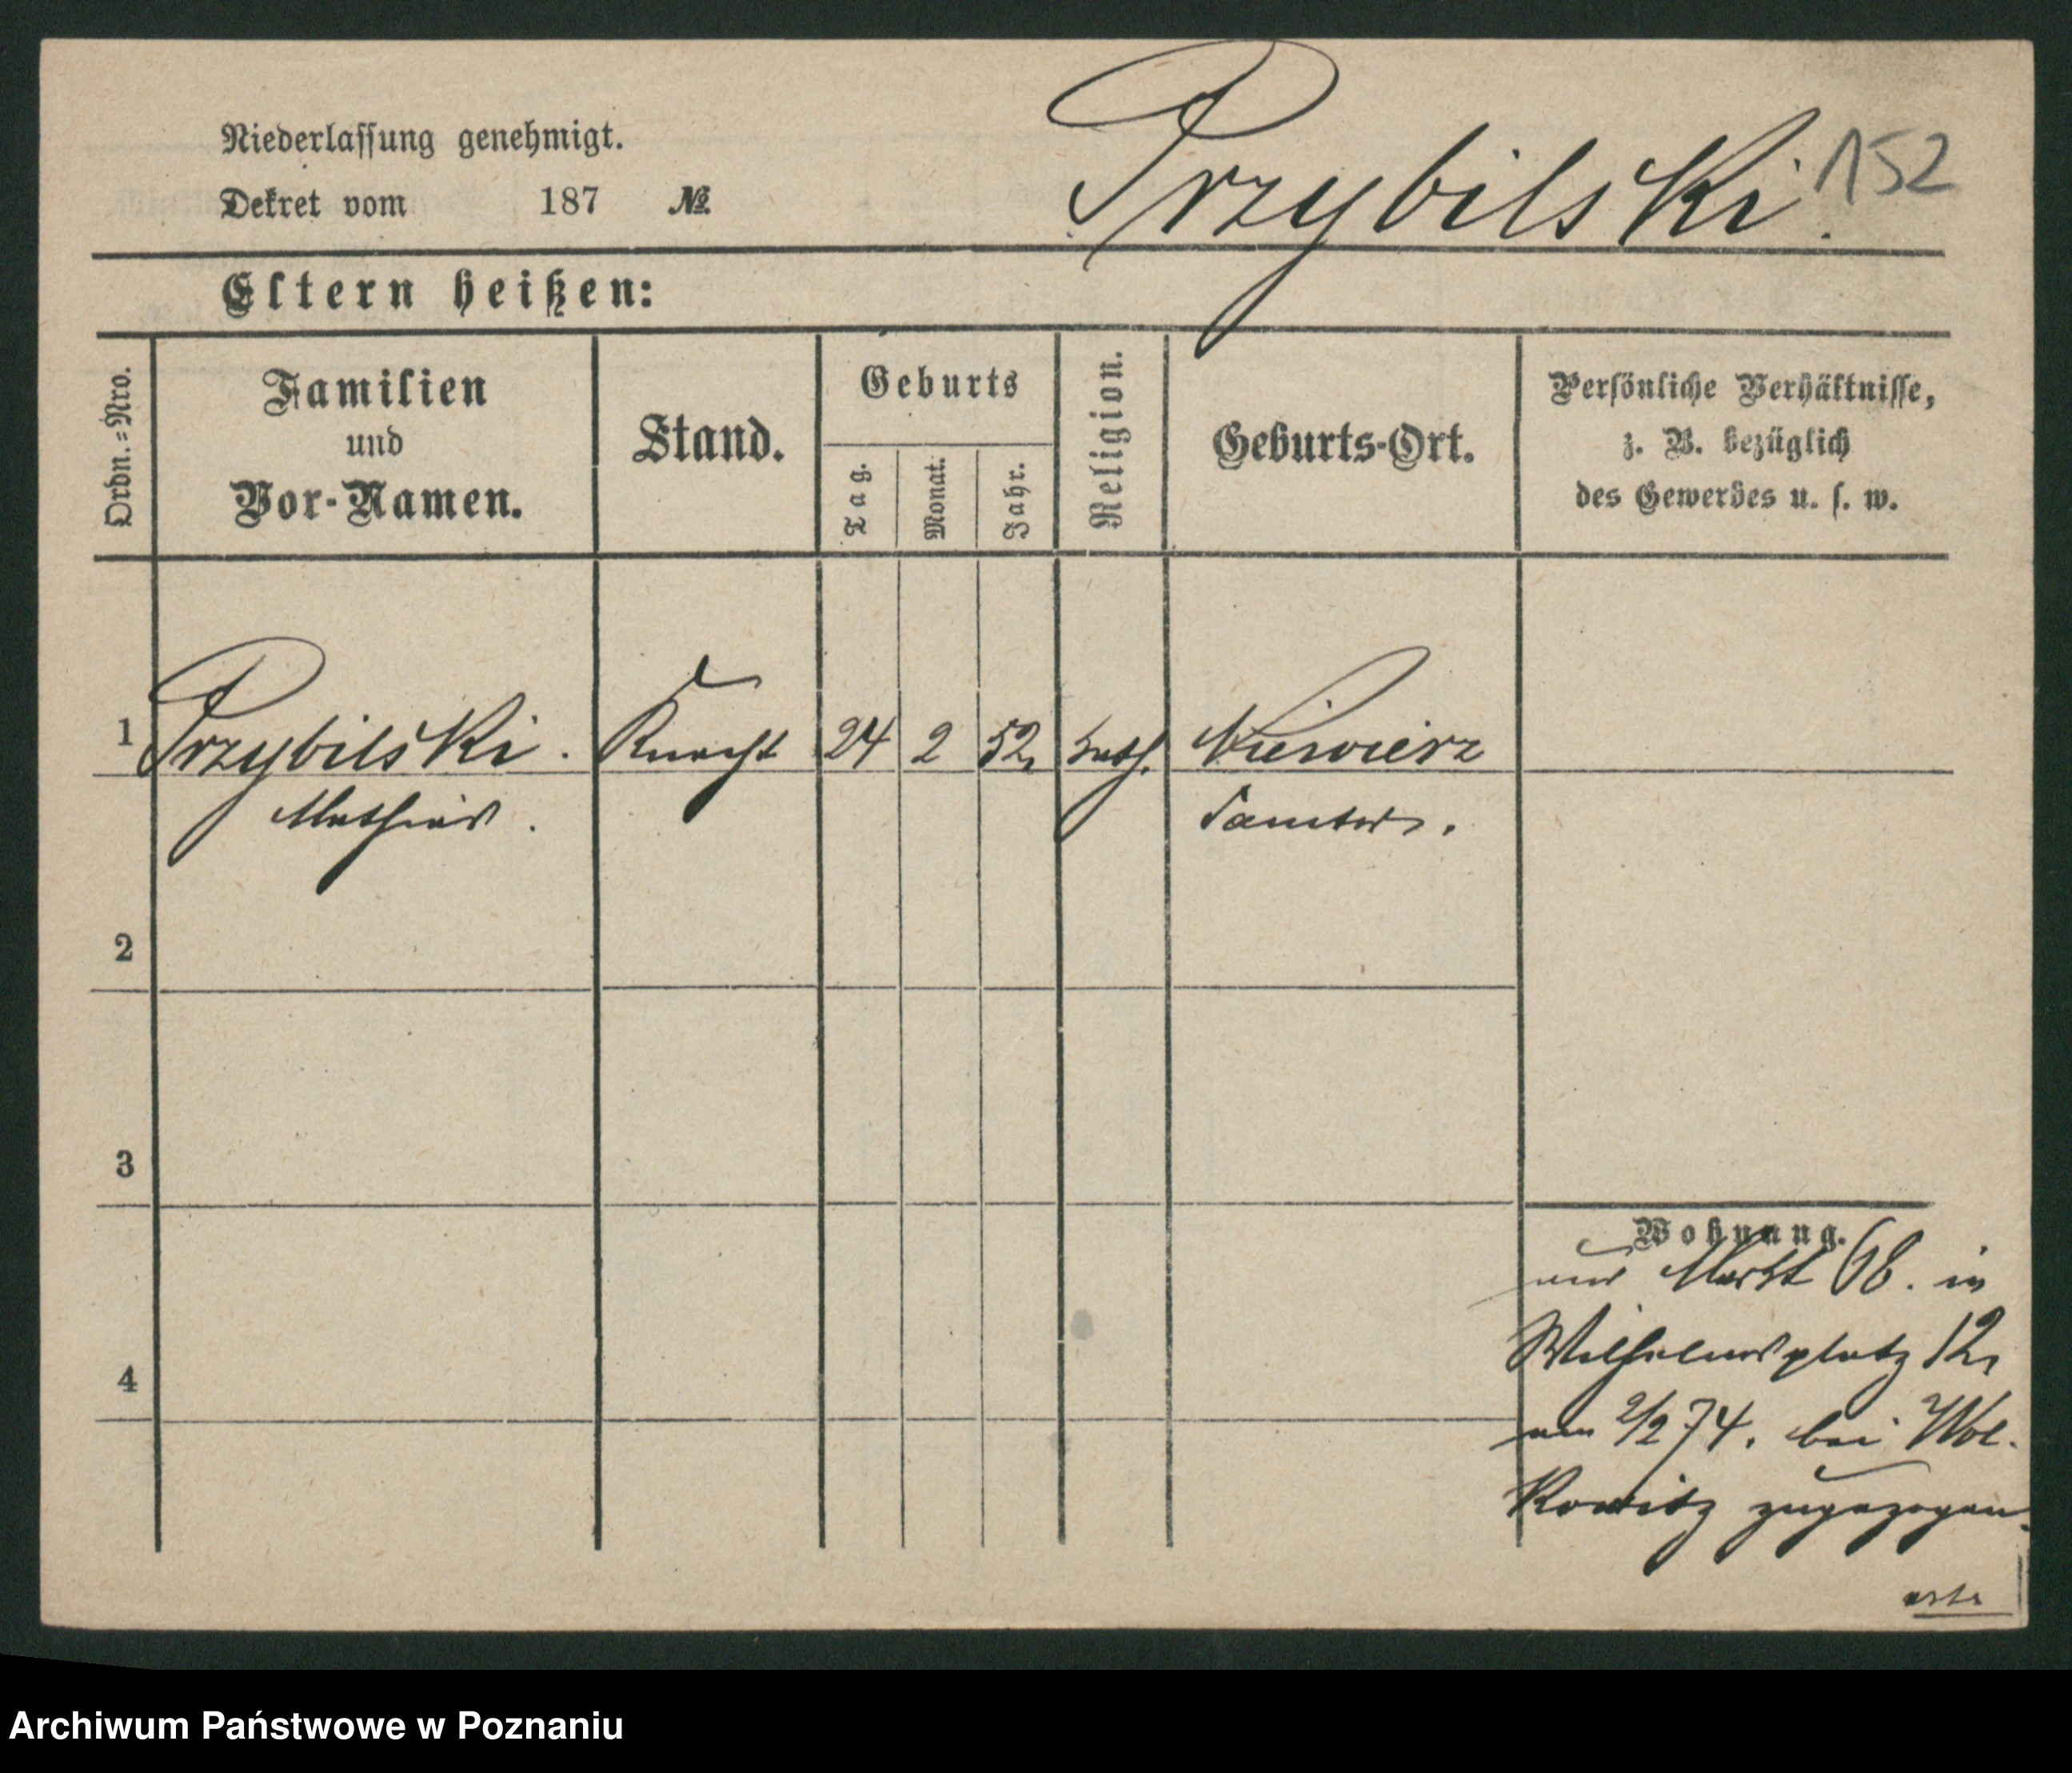 Niederlassung genehmigt.
Dekret vom 187 №
Przybilski.
152
Eltern heißen:
Ordn.=Nro.
Familien
und
Vor-Namen.
Stand.
Geburts
Tag.
Monat.
Jahr.
Religion.
Geburts-Ort.
Persönliche Verhältnisse,
z. B. bezüglich
des Gewerbes u. s. w.
1 Przybilski. Knecht 24 2 52 kath. Niewierz
Mathias. Samter.
2
3
4
Wohnung.
Markt 68. in
Wilhelmsplatz 12,
am 2/2 74. bei Wol-
kowitz zugezogen.
Archiwum Państwowe w Poznaniu